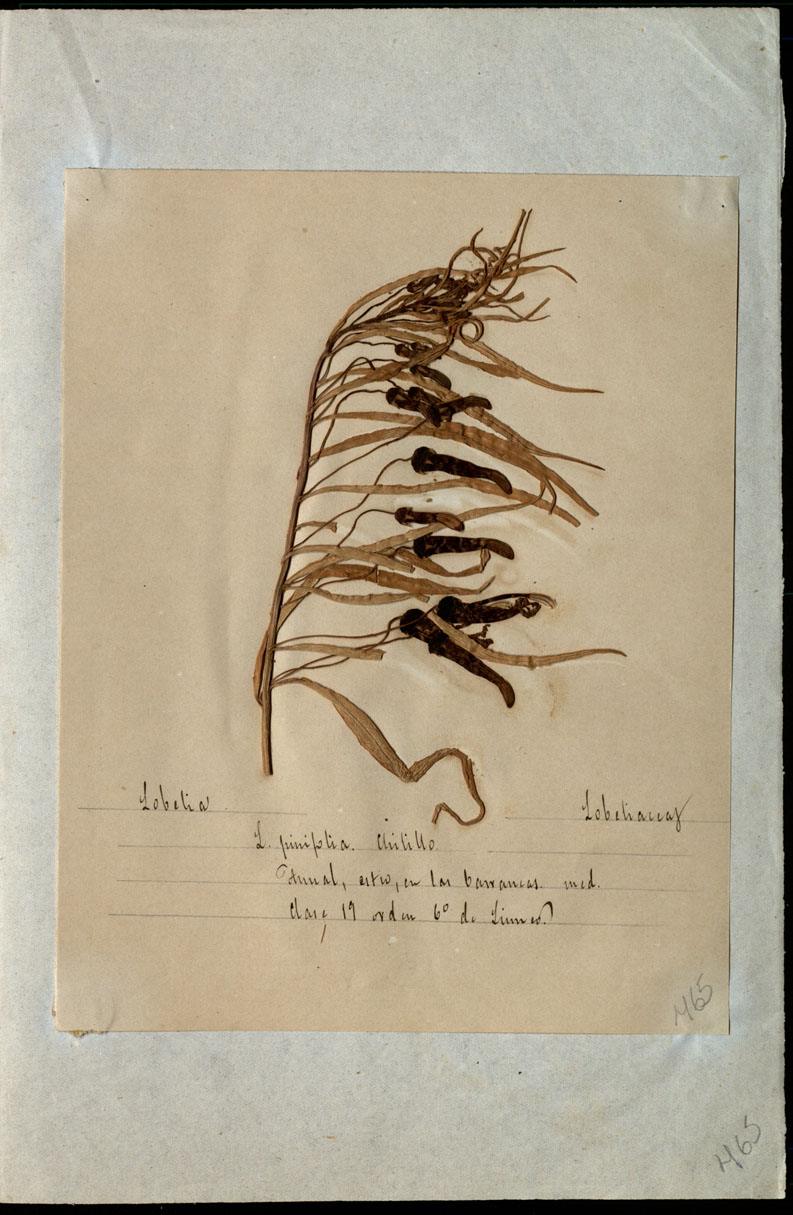 Lobelia
Lobeliaceas
L. pinifolia. Chilillo
Annual, estio, en las barrancas. med.
Clase 19 orden 6º de Linneo.
465
465